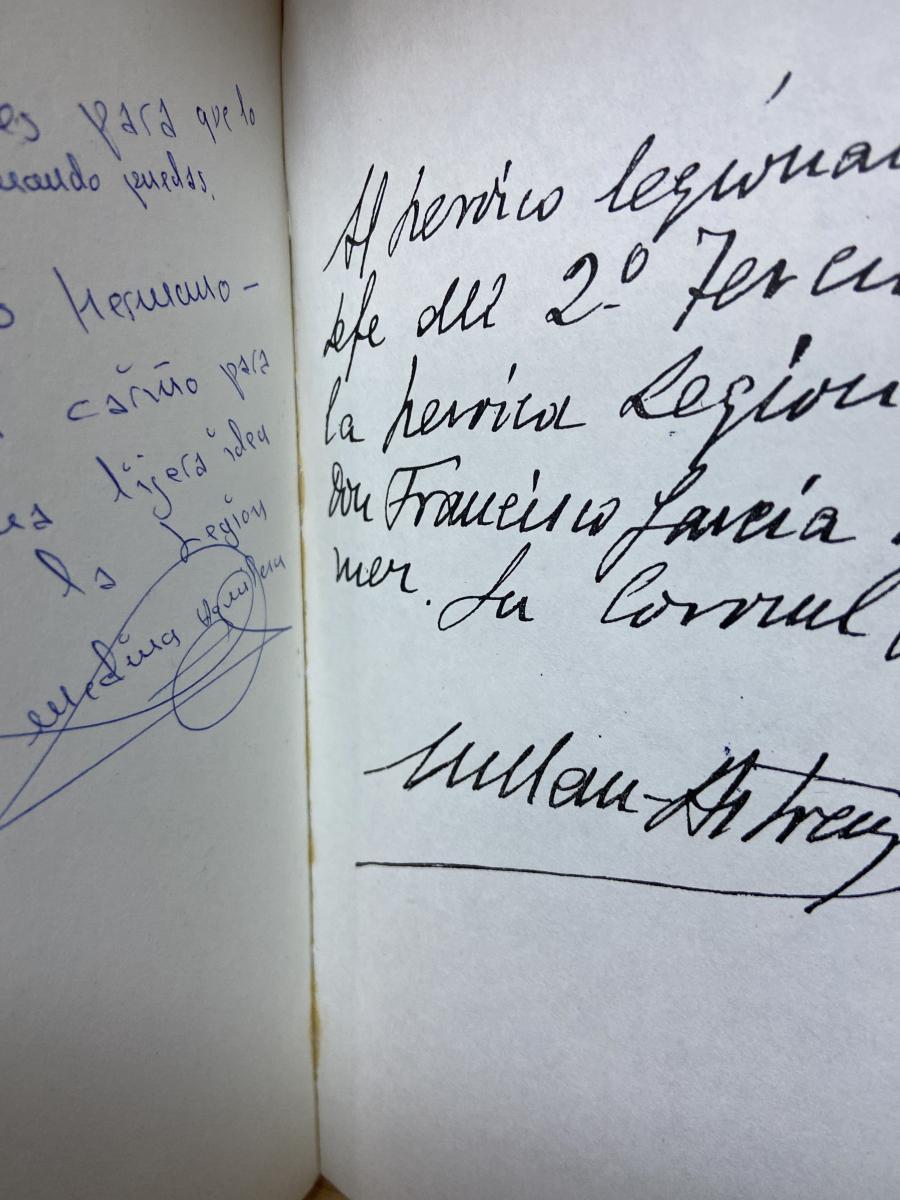 es para que lo
uando puedas.
o Hermano-
cariño para
lijera idea
la Legion
Medina
Al heroico legionar
Jefe del 2.º Tercio
la heroica Legion
Don Francisco Garcia
mer. Su Coronel
Millan-Astray